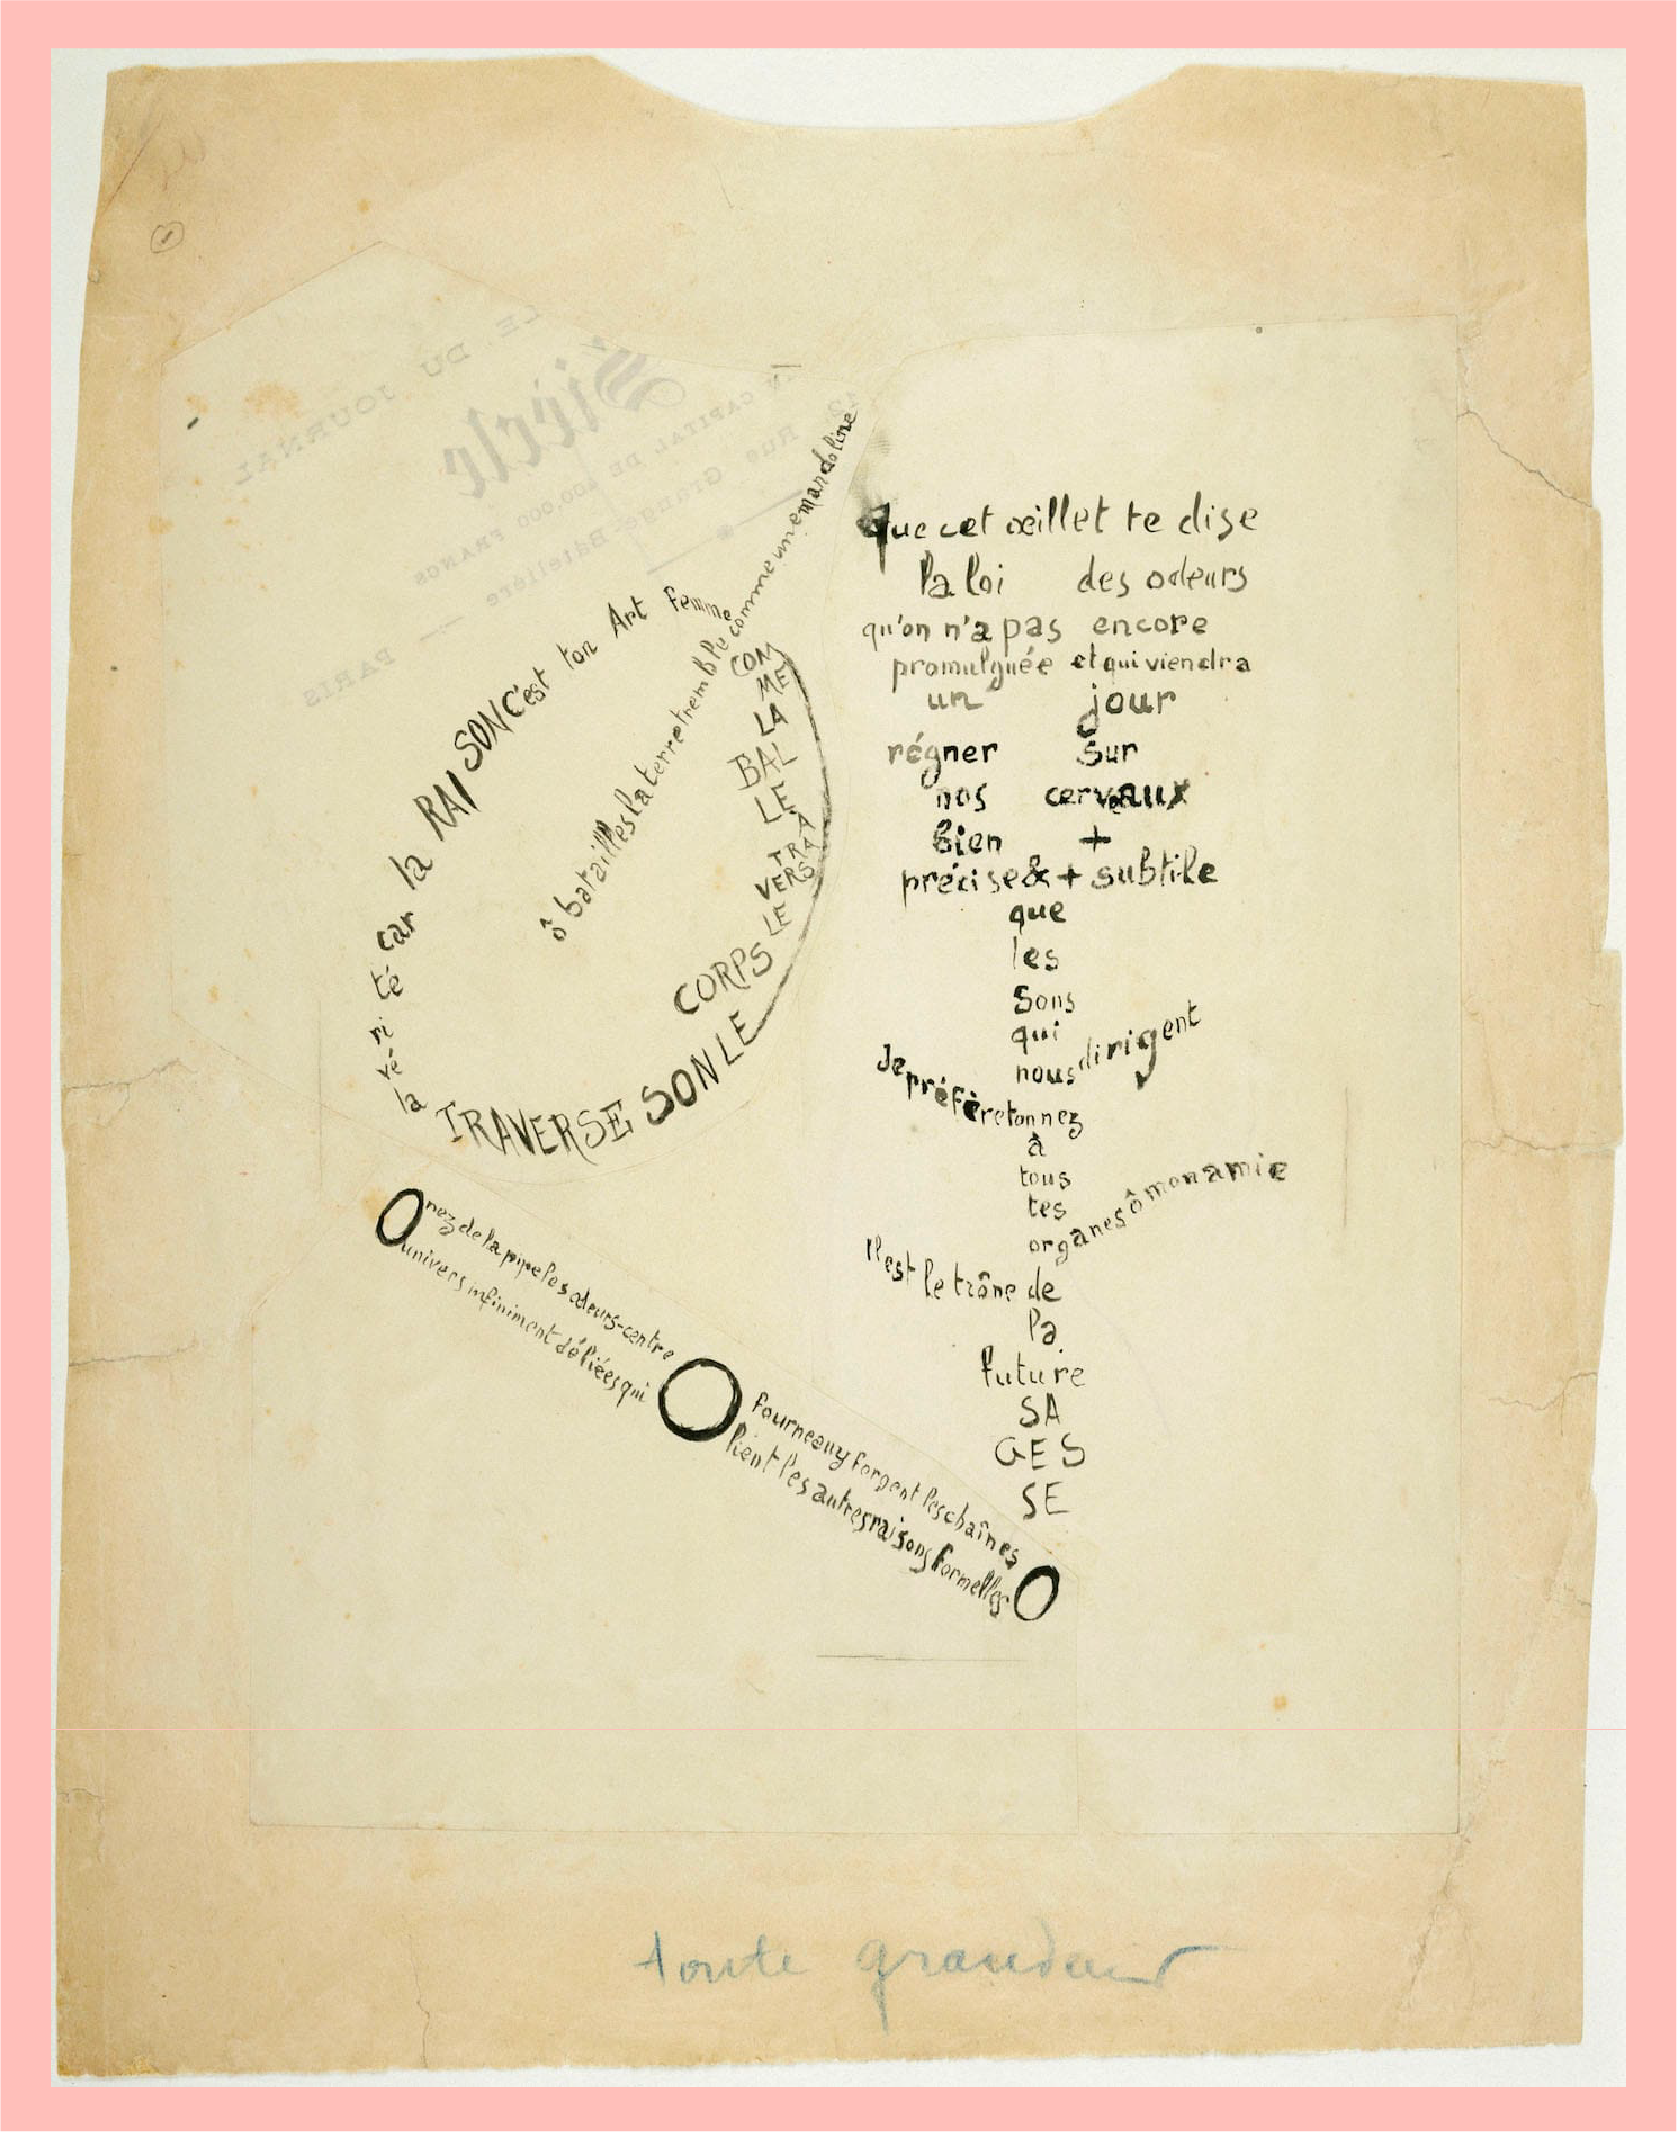 LE
DU
JOURNAL
Siècle
CAPITAL DE 400.000 FRANCS
Rue Grange-Batelière
PARIS
ô batailles la terre tremble comme une mandoline
COM
ME
LA
BAL
LE
À
TRA
VERS
LE
CORPS
TRAVERSE SON LE
la
vé
ri
té
car
la
RAI
SON C'est ton Art femme
que cet œillet te dise
la loi des odeurs
qu'on n'a pas encore
promulguée et qui viendra
un jour
régner sur
nos cerveaux
bien +
précise & + subtile
que
les
sons
qui
nous dirigent
Je préfère ton nez
à
tous
tes
organes ô mon amie
Il est le trône de
la
future
SA
GES
SE
O nez de la pipe les odeurs-centre O fourneau y forgent les chaînes O
univers infiniment déliées qui lient les autres raisons formelles
toute grandeur